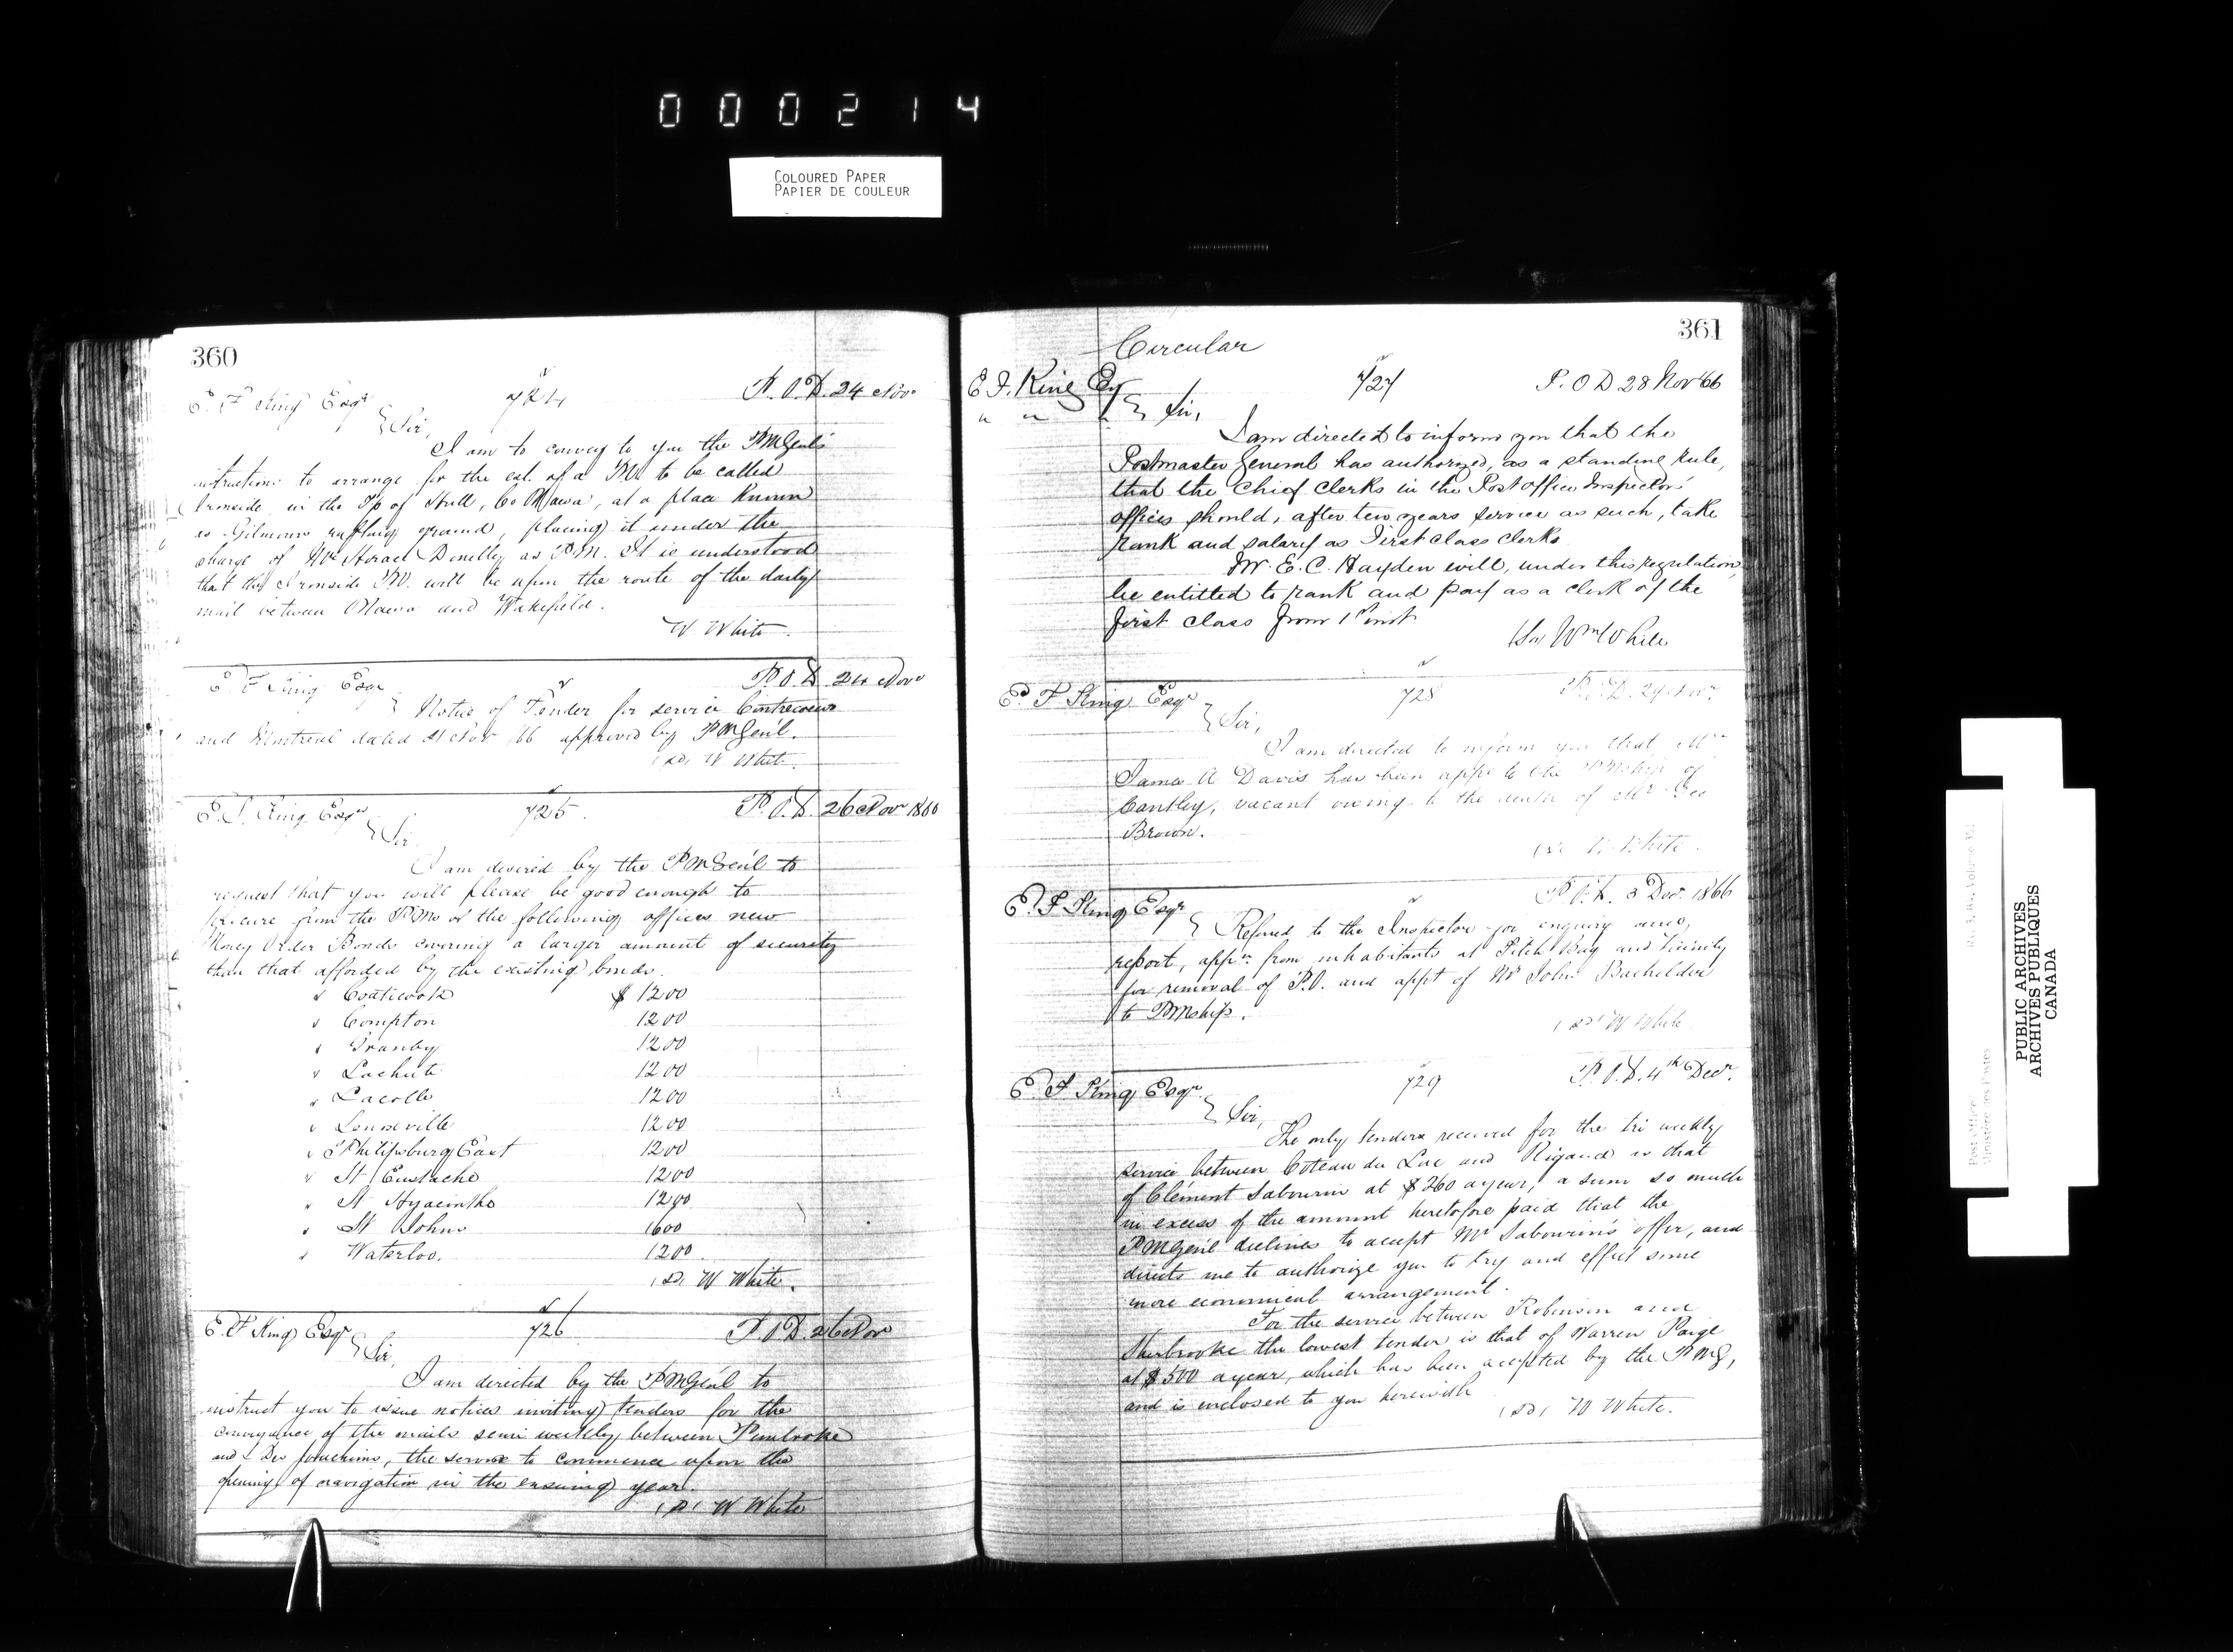 000214
COLOURED PAPER
PAPIER DE COULEUR
360
E. F King Esqr 724 P.O.D. 24 Novr
Sir,
I am to convey to you the PMGenl's
instructions to arrange for the est. of a P.O. to be called
Ironside, in the Tp of Hull, Co Ottawa, at a place known
as Gilmours rafting ground, placing it under the
charge of Mr Donelly as P.M. It is understood
that the Ironside P.O. will be upon the route of the daily
mail between Ottawa and Wakefield.
W White
E. F King Esqr P.O.D. 24 Novr
Notice of Tender for service Contrecoeur
and Montreal dated 21 Novr /66 approved by PMGenl.
(sd) W White.
E. F. King Esqr 725. P.O.D. 26 Novr 1860
Sir
I am desired by the PMGenl to
request that you will please be good enough to
procure from the PMs of the following offices new
Money Order Bonds covering a larger amount of security
than that afforded by the existing bonds.
Coaticook $ 1200
Compton 1200
Granby 1200
Lachute 1200
Lacolle 1200
Lennoxville 1200
Philipsburg East 1200
St Eustache 1200
St Hyacinthe 1200
St Johns 1600
Waterloo. 1200
(sd) W White.
E. F King Esqr 726 P.O.D. 26 Novr
Sir,
I am directed by the PMGenl to
instruct you to issue notices inviting tenders for the
conveyance of the mails semi weekly between Pembroke
and Des Joachims, the service to commence upon the
opening of navigation in the ensuing year.
(sd) W White
361
Circular
E. F. King Esq 727 P.O D 28 Nov '66
" " " Sir,
I am directed to inform you that the
Postmaster General has authorized, as a standing rule,
that the Chief Clerks in the Post office Inspectors'
offices should, after ten years service as such, take
rank and salary as First Class Clerks
Mr. E. C. Hayden will, under this regulation,
be entitled to rank and pay as a clerk of the
first class from 1st inst
(Sd Wm White
E. F King Esqr 728 P.O.D. 29 Novr.
Sir,
I am directed to inform you that Mr
James A Davis has been appd to the PMship of
Cantley, vacant owing to the death of Mr Geo
Brown.
(sd) W White.
E. F King Esqr P.O.D. 3 Decr 1866
Referred to the Inspector for enquiry and
report, appn from inhabitants at Fitch Bay and Vicinity
for removal of P.O. and appt of Mr John Bachelder
to PMship.
(sd) W White
E. F King Esqr 729 P.O.D. 4th Decr.
Sir,
The only tender received for the tri weekly
service between Coteau du Lac and Rigaud is that
of Clément Sabourin at $260 a year, a sum so much
in excess of the amount heretofore paid that the
PMGenl declines to accept Mr Sabourin's offer, and
directs me to authorize you to try and effect some
more economical arrangement.
For the service between Robinson and
Sherbrooke the lowest tender is that of Warren Paige
at $500 a year, which has been accepted by the PMG,
and is enclosed to you herewith
(sd) W White.
PUBLIC ARCHIVES
ARCHIVES PUBLIQUES
CANADA
Post Office
Ministère des Postes